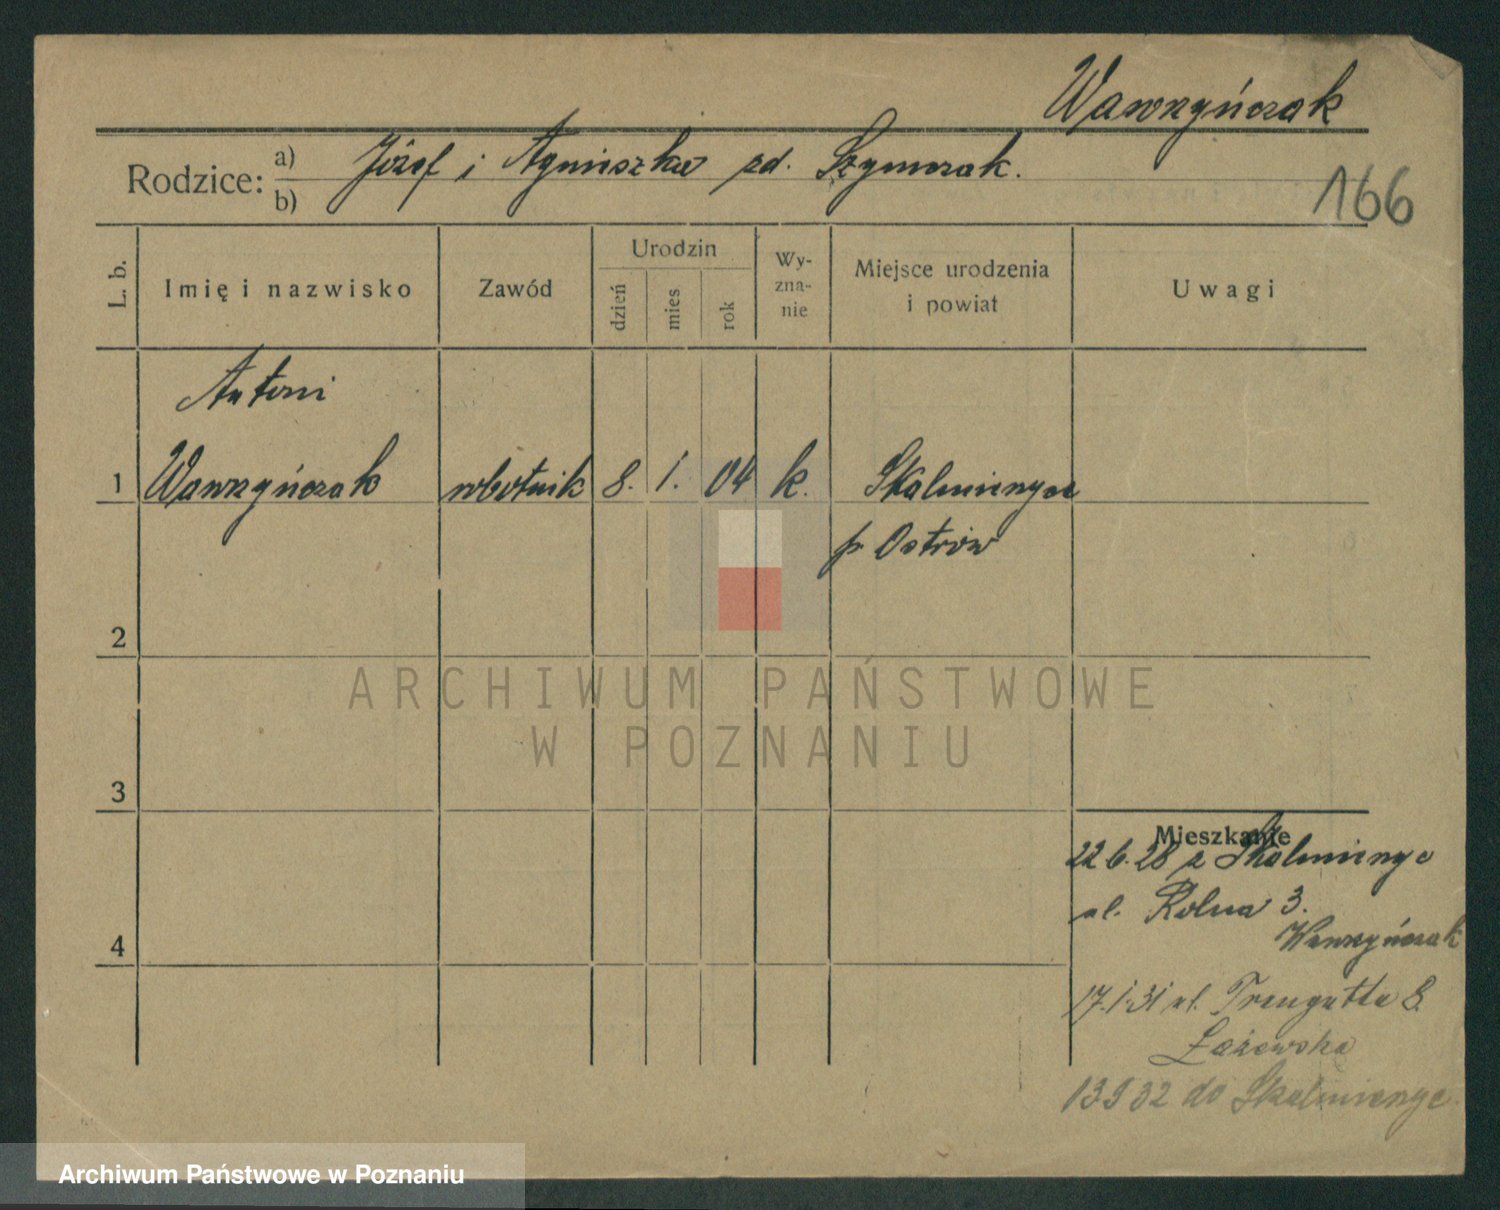 Wawrzyńczak
Rodzice: a) Józef i Agnieszka zd. Szymczak.
b)
166
L. b.
Imię i nazwisko
Zawód
Urodzin
dzień
mies
rok
Wy-
zna-
nie
Miejsce urodzenia
i powiat
Uwagi
Antoni
1 Wawrzyńczak robotnik 8. 1. 04 k. Skalmierzyce
p. Ostrów
2
ARCHIWUM PAŃSTWOWE
W POZNANIU
3
Mieszkanie
22 6. 28 z Skalmierzyc
ul. Rolna 3.
Wawrzyńczak
4
17.1.31 ul. Traugutta 8.
Łażewska
13 9 32 do Skalmierzyc
Archiwum Państwowe w Poznaniu